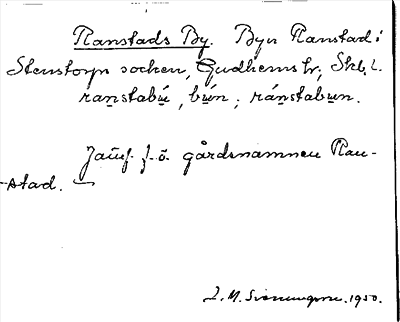 Ranstads By. Byn Ranstad i
Stenstorps socken, Gudhems hr; Skb. l.
ranstabú, bún; ránstabun.
Jämf. f. ö. gårdsnamnen Ran-
stad.
1950.